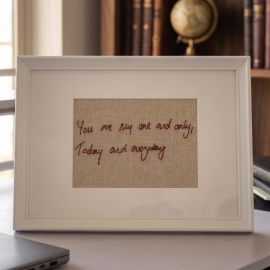 You are my one and only,
Today and everyday